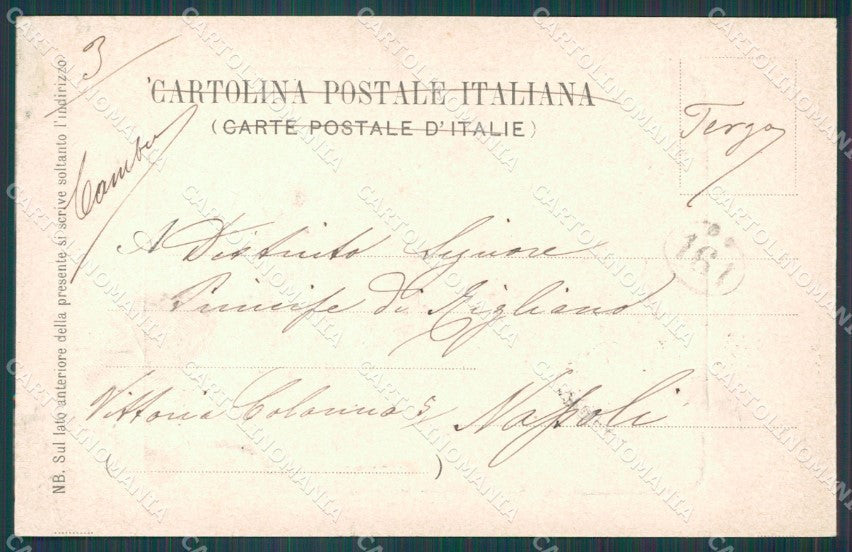 3
CARTOLINA POSTALE ITALIANA
(CARTE POSTALE D'ITALIE)
Terzo
A Distinto Signore
161
Principe di Migliano
Vittoria Colonna 5 Napoli
( )
NB. Sul lato anteriore della presente si scrive soltanto l'indirizzo
CARTOLINOMANIA